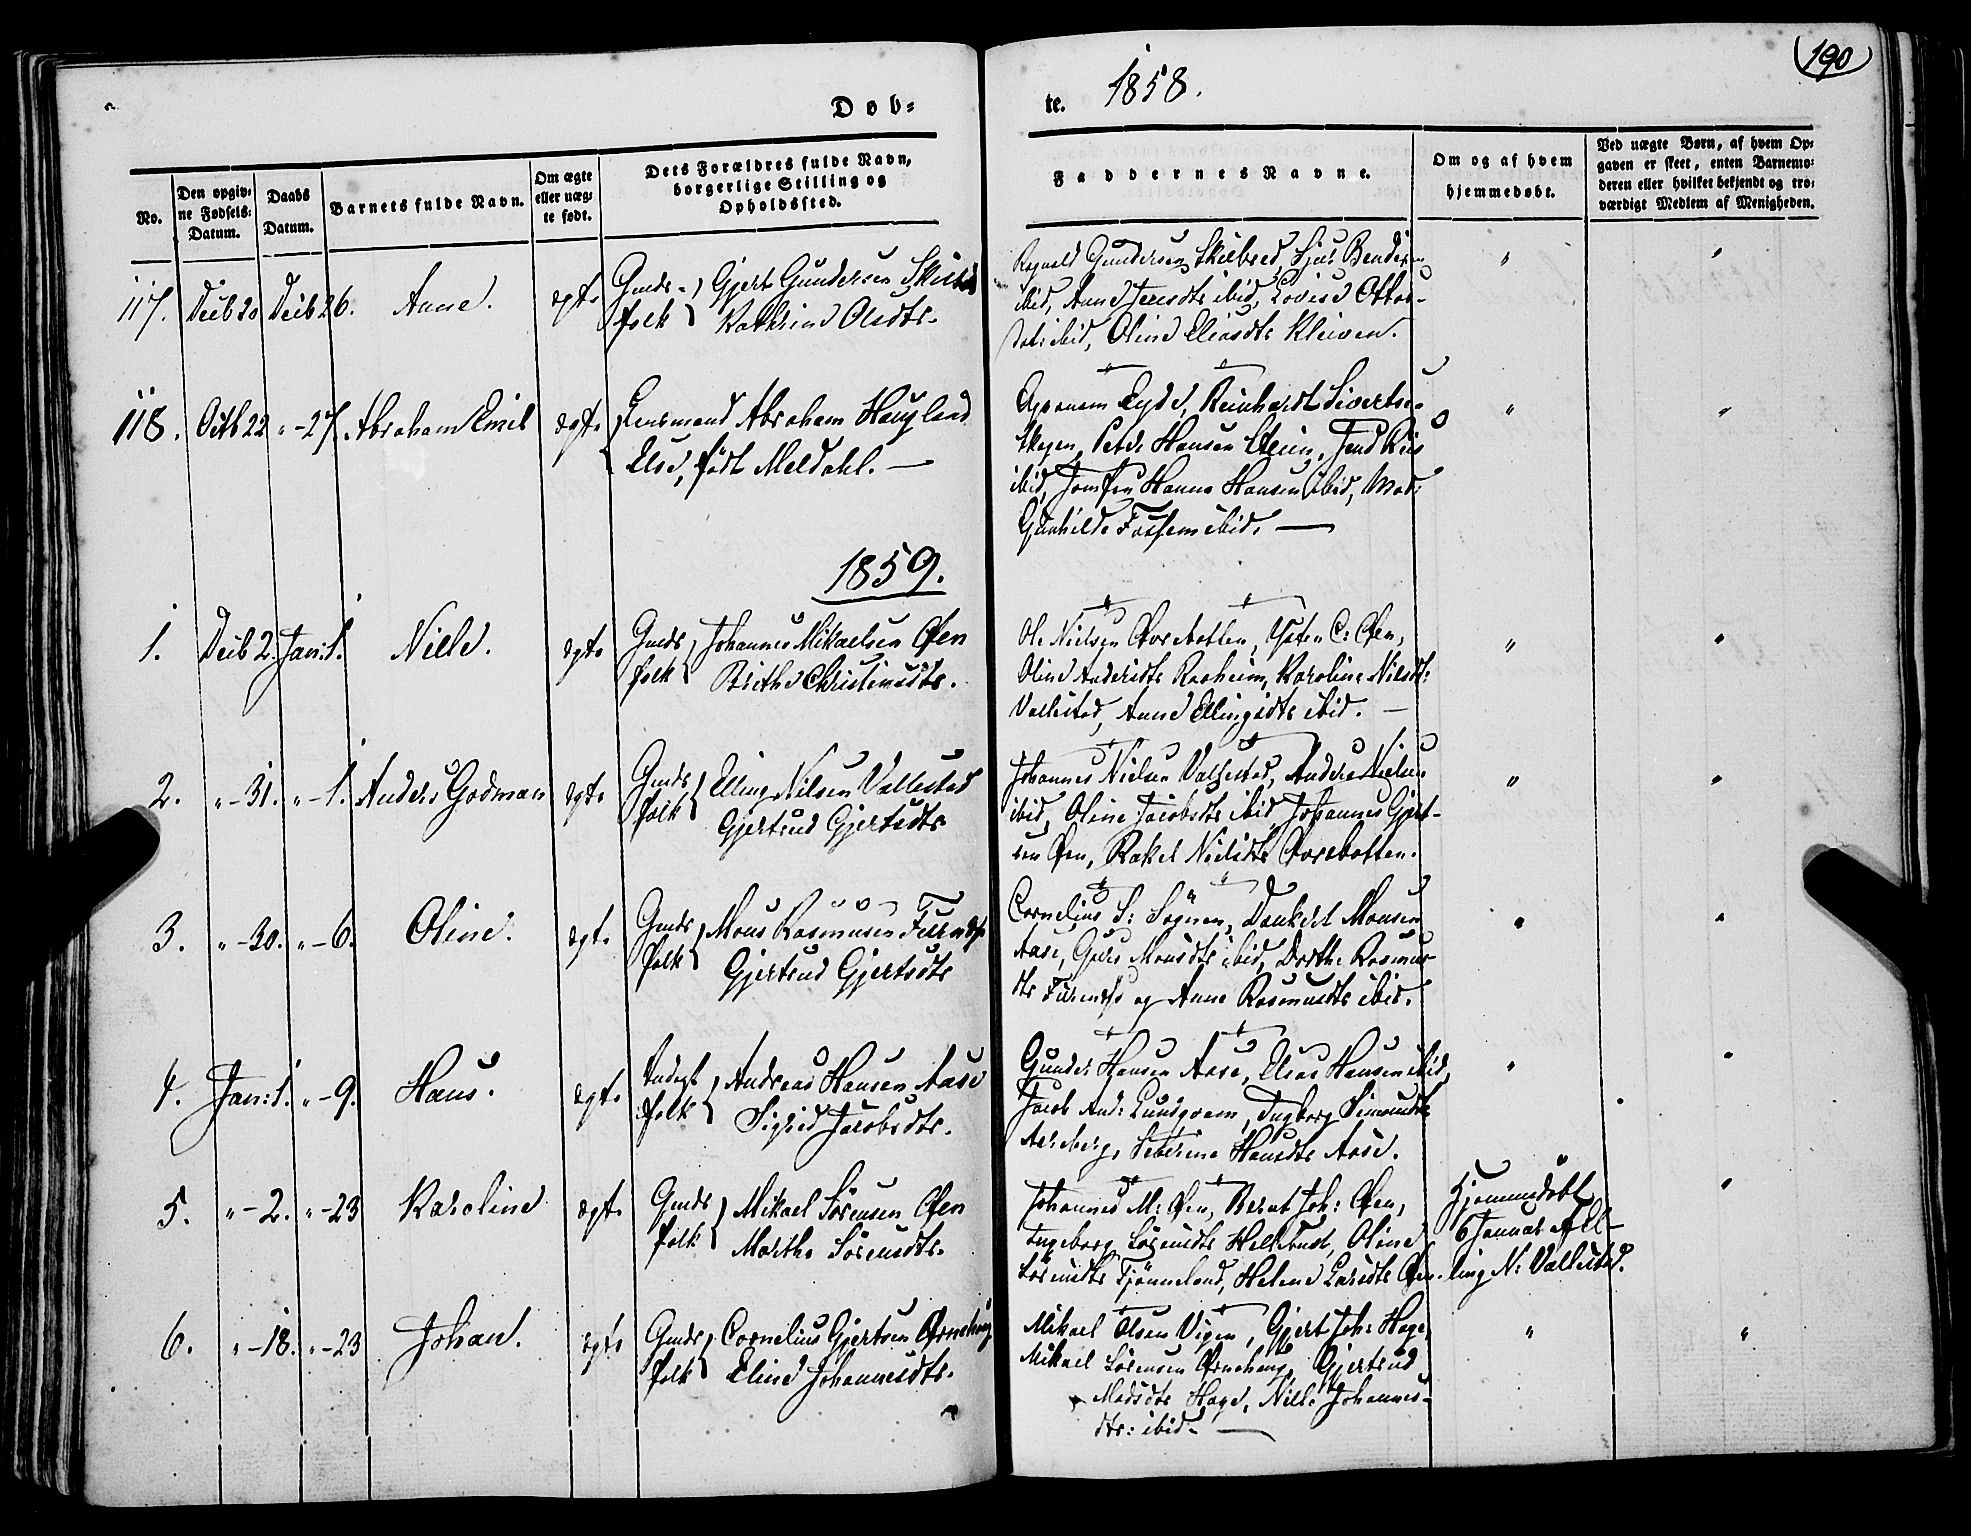 190
Døb=
te. 1858.
No.
Den opgiv=
ne Fødsels=
Datum.
Daabs
Datum.
Barnets fulde Navn.
Om ægte
eller uæg=
te født.
Dets Forældres fulde Navn,
borgerlige Stilling og
Opholdssted.
Faddernes Navne.
Om og af hvem
hjemmedøbt.
Ved uægte Børn, af hvem Op=
gaven er skeet, enten Barnemo=
deren eller hvilket bekjendt og tro=
værdigt Medlem af Menigheden.
117. Decb 20 Decb 26. Anne. ægte Gmds- folk
Gjert Gundersen
Kathrine Olsdtr.
Gundersen Skilbred,
ibid, Anne ibid, Lovise Ottos-
datr ibid, Oline Eliasdtr Kleiven.
" "
118. Octb 22 "-27. Abraham Emil ægte Lensmand Abraham Haugland
Else, født Meldahl. —
Eyde, Reinhardt Sivertsen
Peder Hansen Steien,
ibid, Jomfru Hanna Hansen ibid, Mad:
Gunhilde Fossem ibid. —
" "
1859.
1. Decb 2. Jan: 1. Nille. ægte Gmds folk
Johannes Mikaelsen Øen
Brithe Christensdtr.
Ole Nielsen C: Øen,
Oline Andersdtr Raaheim, Karoline Nilsdtr:
Vallestad, Anne Ellingsdtr ibid. —
" "
2. "-31. "-1. Anders Godman ægte Gmds folk
Elling Nilsen Vallestad
Gjertrud Gjertsdtr
Johannes Nielsen Vallestad, Anders Nielsen
ibid, Oline Jacobsdtr ibid, Johannes Gjert-
sen Øen, Rakel Nielsdtr
" "
3. "-30. "-6. Oline. ægte Gmds folk
Mons Rasmusen
Gjertrud Gjertsdtr
Cornelius S: Dankert Monsen
Aase, Monsdtr ibid, Dorthe Rasmus-
dtr og Anne Rasmusdtr ibid.
" "
4. Jan: 1. "-9. Hans. ægte folk
Andreas Hansen Aase
Sigrid Jacobsdtr.
Gunder Hansen Aase, Elias Hansen ibid,
Jacob And: Ingeborg Simonsdtr
Severine Hansdtr Aase.
" "
5. "-2. "-23 Karoline ægte Gmds folk
Mikael Sørensen Øen
Marthe Sørensdtr.
Johannes M: Øen, Bernt Joh: Øen,
Ingeborg Sørensdtr Oline
Sørensdtr Tjønneland, Helene Larsdtr Øen.
Hjemmedøbt
6 Januar af El-
ling N: Vallestad.
"
6. "-18. "-23 Johan. ægte Gmds folk
Cornelius Gjertsen
Eline Johannesdtr.
Mikael Olsen Gjert Joh: Hage,
Mikael Sørensen Gjertrud
Madsdtr Hage, Nille Johannes-
dtr: ibid. —
" "